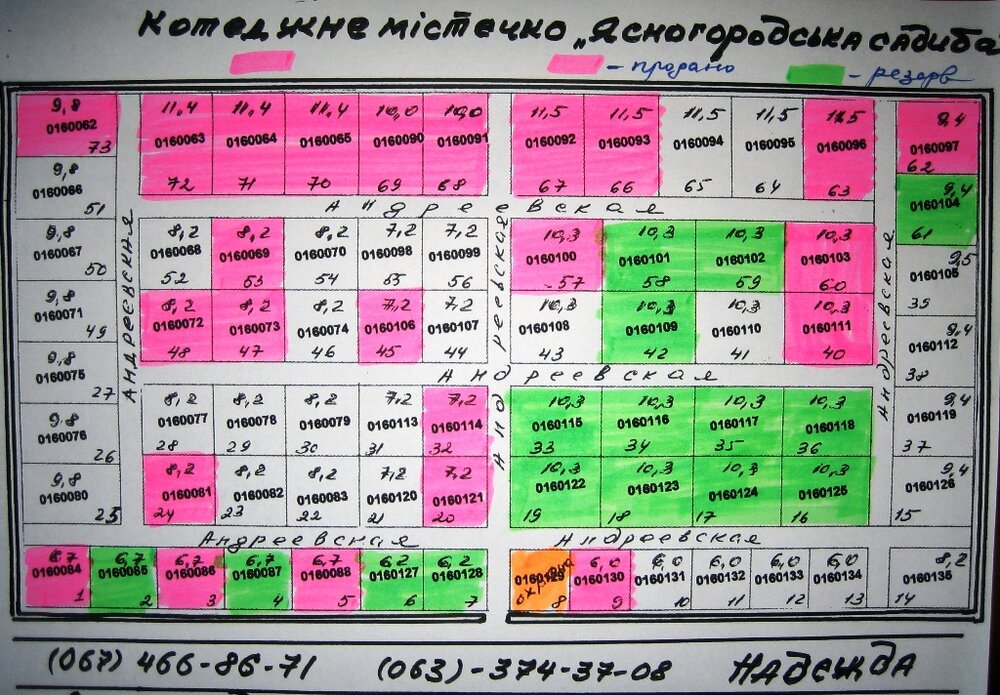 Котеджне містечко „Ясногородська садиба
- продано - резерв
9,8 11,4 11,4 11,4 10,0 10,0 11,5 11,5 11,5 11,5 11,5 9,4
0160062 0160063 0160064 0160065 0160090 0160091 0160092 0160093 0160094 0160095 0160096 0160097
73 72 71 70 69 68 67 66 65 64 63 62
9,8 9,4
0160066 0160104
51 61
Андреевская
9,8 8,2 8,2 8,2 7,2 7,2 10,3 10,3 10,3 10,3 9,5
0160067 0160068 0160069 0160070 0160098 0160099 0160100 0160101 0160102 0160103 0160105
50 52 53 54 55 56 57 58 59 60 35
9,8 8,2 8,2 8,2 7,2 7,2 10,3 10,3 10,3 10,3 9,4
0160071 0160072 0160073 0160074 0160106 0160107 0160108 0160109 0160110 0160111 0160112
49 48 47 46 45 44 43 42 41 40 38
Андреевская
Андреевская
Андреевская
Андреевская
9,8 8,2 8,2 8,2 7,2 7,2 10,3 10,3 10,3 10,3 9,4
0160075 0160077 0160078 0160079 0160113 0160114 0160115 0160116 0160117 0160118 0160119
27 28 29 30 31 32 33 34 35 36 37
9,8
0160076
26
9,8 8,2 8,2 8,2 7,2 7,2 10,3 10,3 10,3 10,3 9,4
0160080 0160081 0160082 0160083 0160120 0160121 0160122 0160123 0160124 0160125 0160126
25 24 23 22 21 20 19 18 17 16 15
Андреевская Андреевская
6,7 6,7 6,7 6,7 6,7 6,2 6,2 охрана 6,0 6,0 6,0 6,0 6,0 8,2
0160084 0160085 0160086 0160087 0160088 0160127 0160128 0160129 0160130 0160131 0160132 0160133 0160134 0160135
1 2 3 4 5 6 7 8 9 10 11 12 13 14
(067) 466-86-71 (063)-374-37-08 НАДЕЖДА